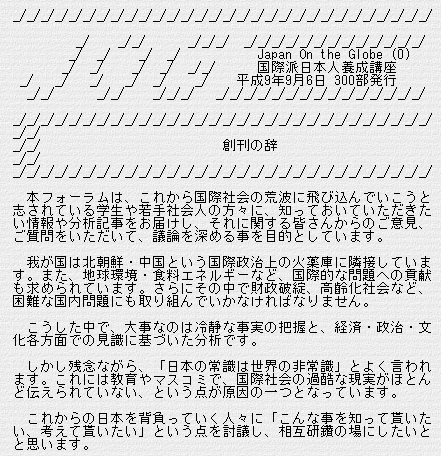 Japan On the Globe (0)
国際派日本人養成講座
平成9年9月6日 300部発行
創刊の辞
本フォーラムは、これから国際社会の荒波に飛び込んでいこうと
志されている学生や若手社会人の方々に、知っておいていただきた
い情報や分析記事をお届けし、それに関する皆さんからのご意見、
ご質問をいただいて、議論を深める事を目的としています。
我が国は北朝鮮・中国という国際政治上の火薬庫に隣接していま
す。また、地球環境・食料エネルギーなど、国際的な問題への貢献
も求められています。さらにその中で財政破綻、高齢化社会など、
困難な国内問題にも取り組んでいかなければなりません。
こうした中で、大事なのは冷静な事実の把握と、経済・政治・文
化各方面での見識に基づいた分析です。
しかし残念ながら、「日本の常識は世界の非常識」とよく言われ
ます。これには教育やマスコミで、国際社会の過酷な現実がほとん
ど伝えられていない、という点が原因の一つとなっています。
これからの日本を背負っていく人々に「こんな事を知って貰いた
い、考えて貰いたい」という点を討議し、相互研鑽の場にしたいと
と思います。